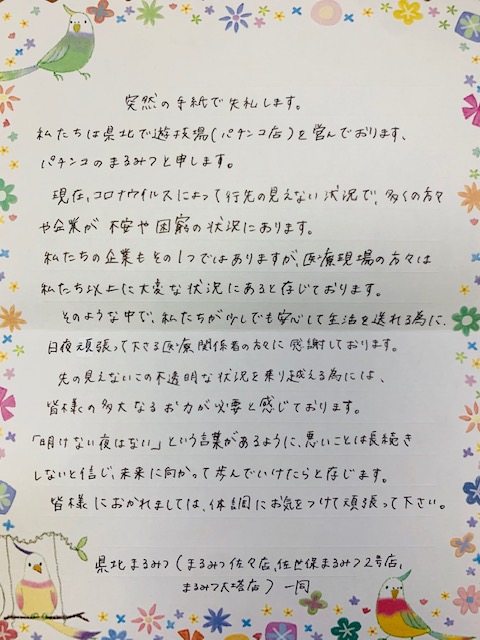 突然の手紙で失礼します。
私たちは県北で遊技場(パチンコ店)を営んでおります、
パチンコのまるみつと申します。
現在、コロナウイルスによって行先の見えない状況で、多くの方々
や企業が不安や困窮の状況にあります。
私たちの企業もその1つではありますが、医療現場の方々は
私たち以上に大変な状況にあると存じております。
そのような中で、私たちが少しでも安心して生活を送れる為に、
日夜頑張って下さる医療関係者の方々に感謝しております。
先の見えないこの不透明な状況を乗り越える為には、
皆様の多大なるお力が必要と感じております。
「明けない夜はない」という言葉があるように、悪いことは長続き
しないと信じ、未来に向かって歩んでいけたらと存じます。
皆様におかれましては、体調にお気をつけて頑張って下さい。
県北まるみつ(まるみつ佐々店、佐世保まるみつ2号店、
まるみつ大塔店)一同